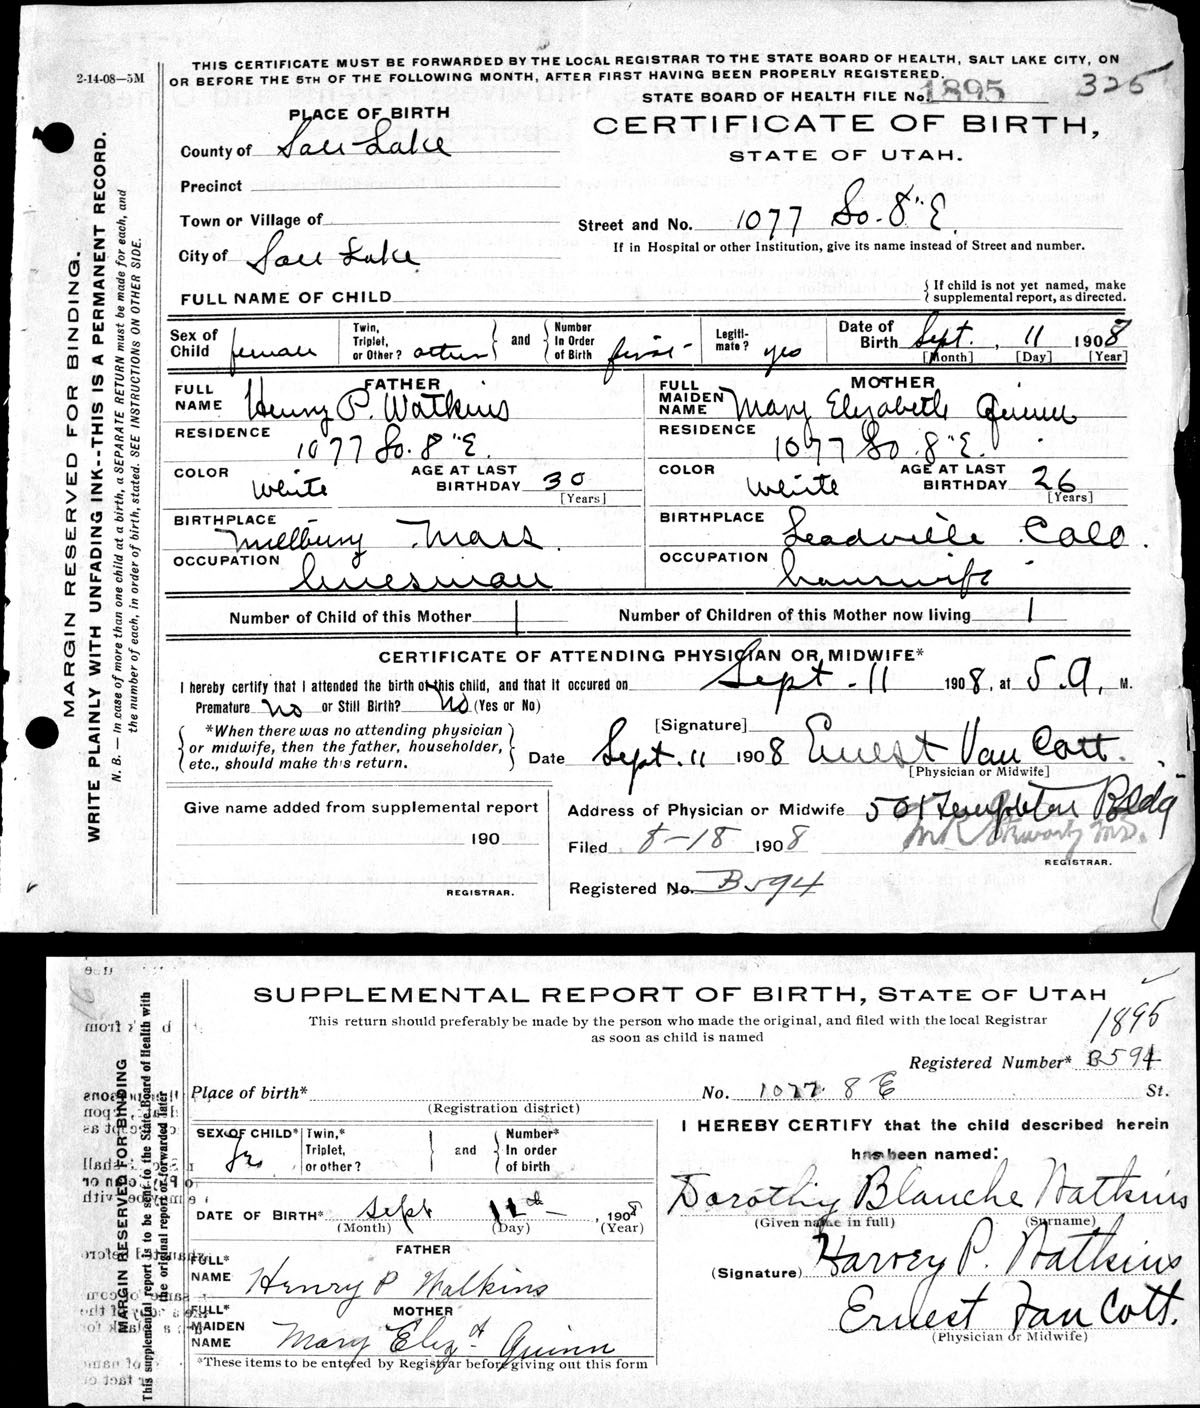 2-14-08—5M
THIS CERTIFICATE MUST BE FORWARDED BY THE LOCAL REGISTRAR TO THE STATE BOARD OF HEALTH, SALT LAKE CITY, ON
OR BEFORE THE 5TH OF THE FOLLOWING MONTH, AFTER FIRST HAVING BEEN PROPERLY REGISTERED.
STATE BOARD OF HEALTH FILE No. 1895 325
PLACE OF BIRTH
CERTIFICATE OF BIRTH,
STATE OF UTAH.
County of Salt Lake
Precinct
Town or Village of
Street and No. 1077 So. 8" E.
If in Hospital or other Institution, give its name instead of Street and number.
City of Salt Lake
FULL NAME OF CHILD
{ If child is not yet named, make
supplemental report, as directed.
Sex of Child female Twin, Triplet, or Other? other and Number In Order of Birth first Legiti-mate? yes Date of Birth Sept. 11 1908
[Month] [Day] [Year]
FATHER MOTHER
FULL NAME Henry P. Watkins FULL MAIDEN NAME Mary Elizabeth Quinn
RESIDENCE 1077 So. 8" E. RESIDENCE 1077 So. 8" E.
COLOR White AGE AT LAST BIRTHDAY 30 [Years] COLOR White AGE AT LAST BIRTHDAY 26 [Years]
BIRTHPLACE Millbury Mass. BIRTHPLACE Leadville Colo.
OCCUPATION Linesman OCCUPATION housewife
Number of Child of this Mother 1 Number of Children of this Mother now living 1
CERTIFICATE OF ATTENDING PHYSICIAN OR MIDWIFE*
I hereby certify that I attended the birth of this child, and that it occured on Sept. 11 1908, at 5 A. M.
Premature No or Still Birth? No (Yes or No)
*When there was no attending physician
or midwife, then the father, householder,
etc., should make this return.
[Signature]
Date Sept. 11 1908 Ernest Van Cott.
[Physician or Midwife]
Give name added from supplemental report
190
REGISTRAR.
Address of Physician or Midwife 501 Templeton Bldg
Filed 8-18 1908
REGISTRAR.
Registered No. B594
MARGIN RESERVED FOR BINDING.
WRITE PLAINLY WITH UNFADING INK--THIS IS A PERMANENT RECORD.
N. B. — In case of more than one child at a birth, a SEPARATE RETURN must be made for each, and
the number of each, in order of birth, stated. SEE INSTRUCTIONS ON OTHER SIDE.
SUPPLEMENTAL REPORT OF BIRTH, STATE OF UTAH
This return should preferably be made by the person who made the original, and filed with the local Registrar
as soon as child is named
1895
Registered Number* B594
Place of birth* No. 1077 8 E St.
(Registration district)
SEX OF CHILD* Twin,* Triplet, or other? and Number* In order of birth
DATE OF BIRTH* Sept 11th, 1908
(Month) (Day) (Year)
FATHER
FULL* NAME Henry P Watkins
MOTHER
FULL* MAIDEN NAME Mary Elizat Quinn
*These items to be entered by Registrar before giving out this form
I HEREBY CERTIFY that the child described herein
has been named:
Dorothy Blanche Watkins
(Given name in full) (Surname)
(Signature) Harvey P. Watkins
Ernest Van Cott.
(Physician or Midwife)
MARGIN RESERVED FOR BINDING
This supplemental report is to be sent to the State Board of Health with
the original report or forwarded later